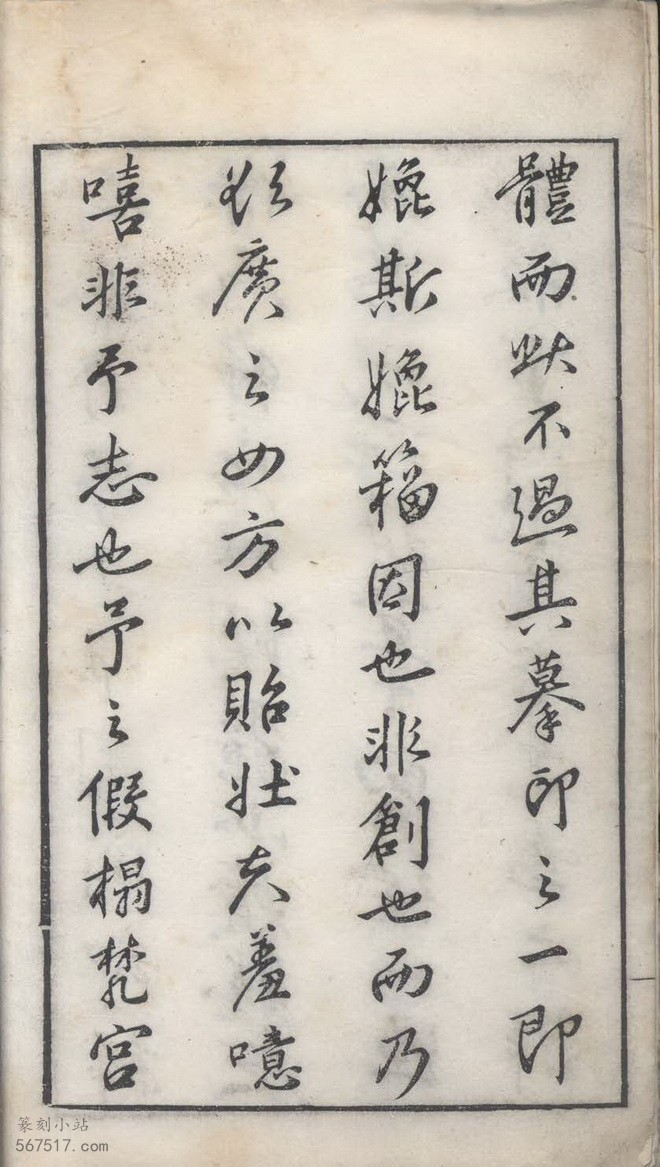 體而不過其摹印之一即
媲斯媲籀因也非創也而乃
廣之毋方以貽壯夫羞噫
嘻非予志也予之假榻梵宮
篆刻小站
567517.com